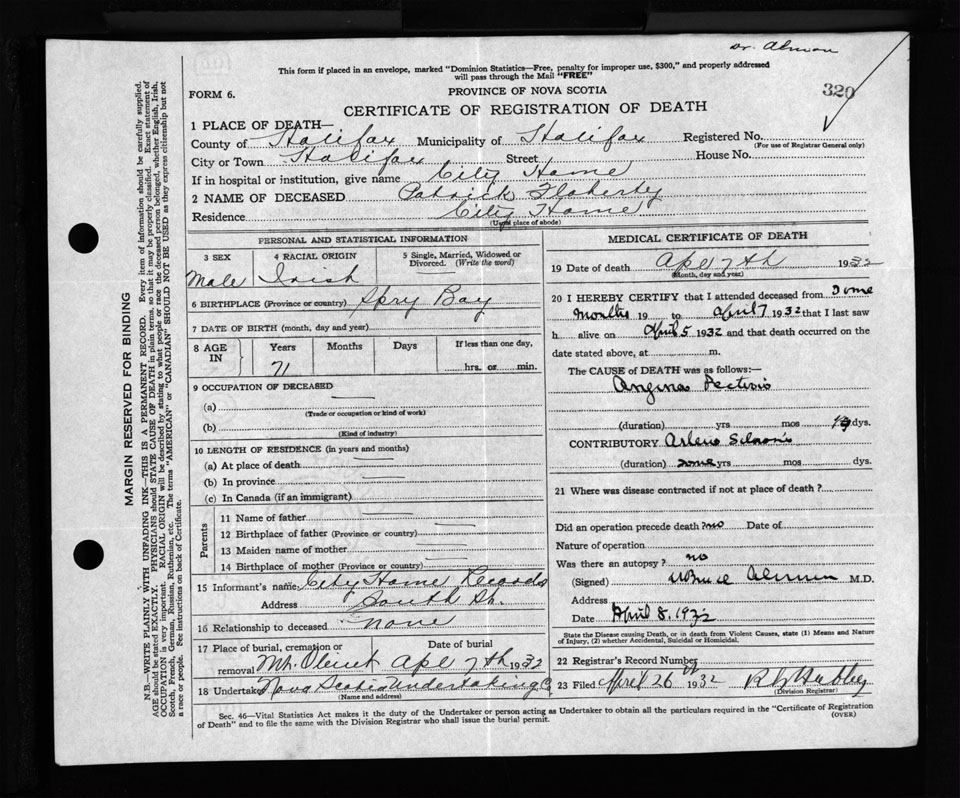 Dr. Almon
This form if placed in an envelope, marked "Dominion Statistics—Free, penalty for improper use, $300," and properly addressed
will pass through the Mail "FREE"
320
FORM 6.
PROVINCE OF NOVA SCOTIA
CERTIFICATE OF REGISTRATION OF DEATH
1 PLACE OF DEATH—
County of Halifax Municipality of Halifax Registered No.
(For use of Registrar General only)
City or Town Halifax Street House No.
If in hospital or institution, give name City Home
2 NAME OF DECEASED Patrick Flaherty
Residence City Home
(Usual place of abode)
PERSONAL AND STATISTICAL INFORMATION
3 SEX 4 RACIAL ORIGIN 5 Single, Married, Widowed or
Divorced. (Write the word)
Male Irish
6 BIRTHPLACE (Province or country) Spry Bay
7 DATE OF BIRTH (month, day and year)
8 AGE IN Years Months Days If less than one day,
71 hrs. or min.
9 OCCUPATION OF DECEASED
(a)
(Trade or occupation or kind of work)
(b)
(Kind of industry)
10 LENGTH OF RESIDENCE (in years and months)
(a) At place of death
(b) In province
(c) In Canada (if an immigrant)
Parents
11 Name of father
12 Birthplace of father (Province or country)
13 Maiden name of mother
14 Birthplace of mother (Province or country)
15 Informant's name City Home Records
Address South St.
16 Relationship to deceased none
17 Place of burial, cremation or Date of burial
removal Mt. Olivet Apl 7th 1932
18 Undertaker Nova Scotia Undertaking Co
(Name and address)
MEDICAL CERTIFICATE OF DEATH
19 Date of death Apl 7th 1932
(Month, day and year)
20 I HEREBY CERTIFY that I attended deceased from Some
Months 19 to April 7 1932 that I last saw
h alive on April 5 1932 and that death occurred on the
date stated above, at m.
The CAUSE of DEATH was as follows:—
Angina Pectoris
(duration) yrs mos dys.
CONTRIBUTORY Arterio Sclerosis
(duration) some yrs mos dys.
21 Where was disease contracted if not at place of death ?
Did an operation precede death? no Date of
Nature of operation
Was there an autopsy? no
(Signed) Bruce Almon M.D.
Address
Date April 8, 1932
State the Disease causing Death, or in death from Violent Causes, state (1) Means and Nature
of Injury, (2) whether Accidental, Suicidal or Homicidal.
22 Registrar's Record Number
23 Filed April 26th 1932
(Division Registrar)
Sec. 46—Vital Statistics Act makes it the duty of the Undertaker or person acting as Undertaker to obtain all the particulars required in the "Certificate of Registration
of Death" and to file the same with the Division Registrar who shall issue the burial permit. (OVER)
MARGIN RESERVED FOR BINDING
N.B.—WRITE PLAINLY WITH UNFADING INK—THIS IS A PERMANENT RECORD. Every item of information should be carefully supplied.
AGE should be stated EXACTLY. PHYSICIANS should STATE CAUSE OF DEATH in plain terms, so that it may be properly classified. Exact statement of
OCCUPATION is very important. RACIAL ORIGIN will be described by stating to what people or race the deceased person belonged, whether English, Irish,
Scotch, French, German, Russian, Ruthenian, etc. The terms "AMERICAN" or "CANADIAN" SHOULD NOT BE USED as they express citizenship but not
a race or people. See instructions on back of Certificate.